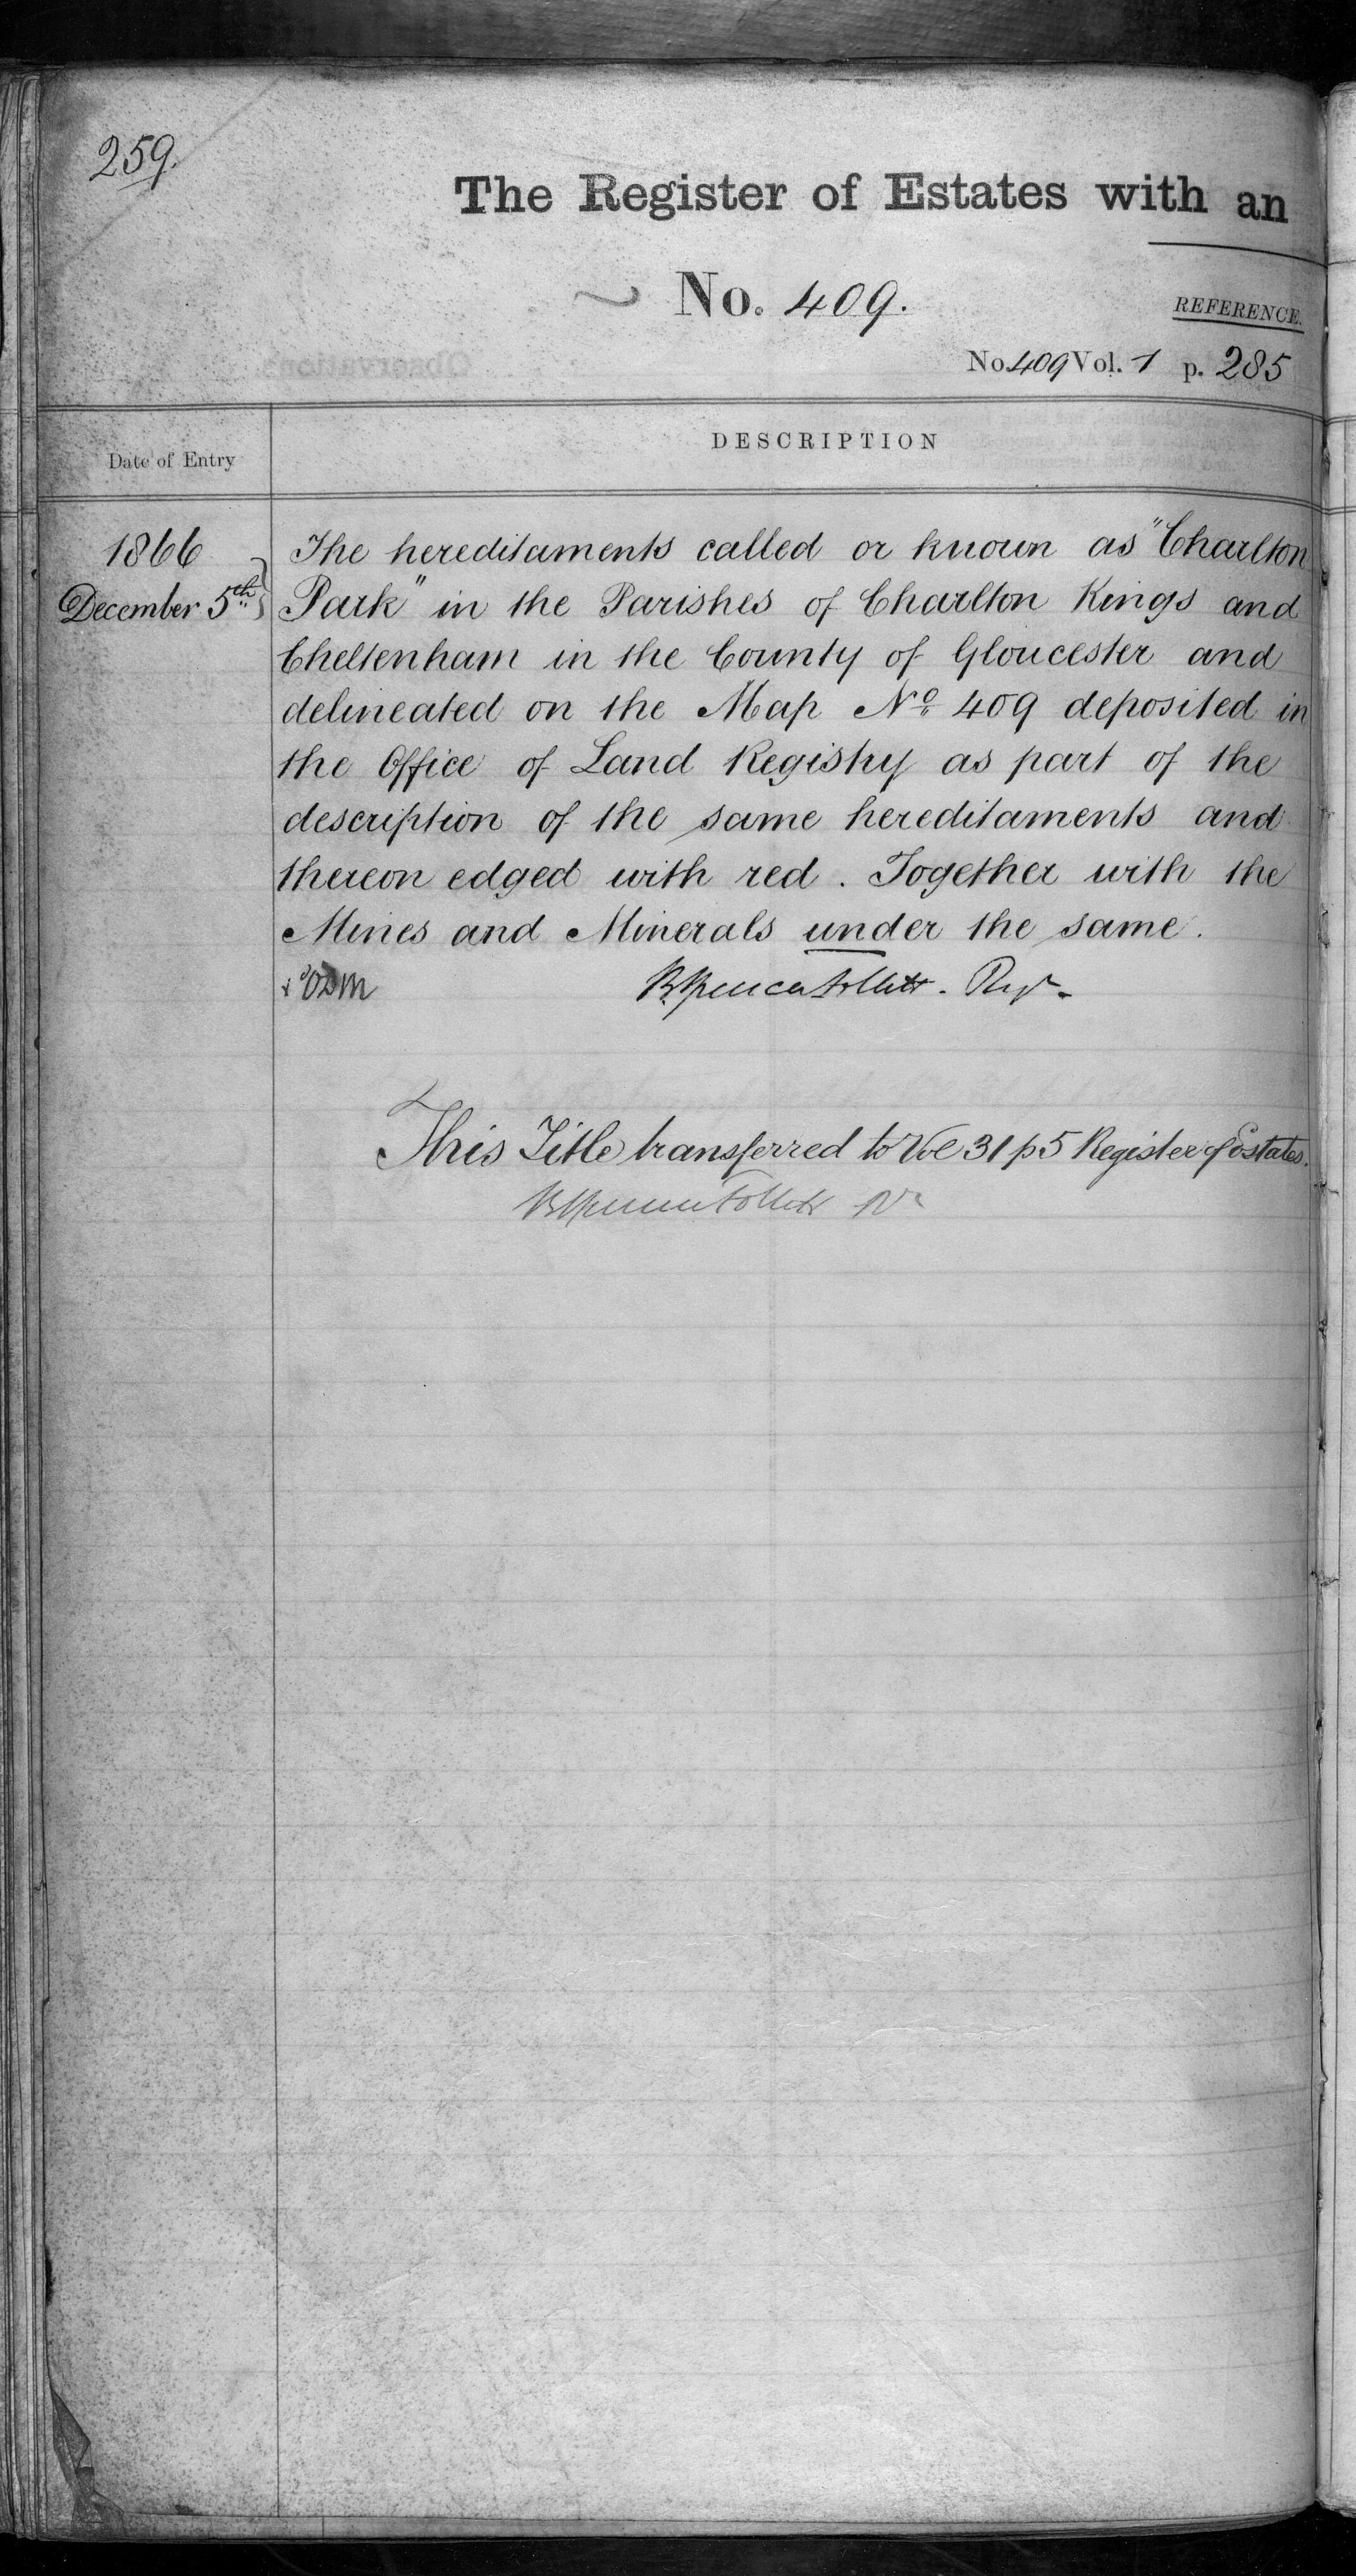 259.
The Register of Estates with an
No. 409.
REFERENCE.
No. 409 Vol. 1 p. 285
Date of Entry
DESCRIPTION
1866
December 5th
The hereditaments called or known as "Charlton
Park" in the Parishes of Charlton Kings and
Cheltenham in the County of Gloucester and
delineated on the Map No 409 deposited in
the Office of Land Registry as part of the
description of the same hereditaments and
thereon edged with red. Together with the
Mines and Minerals under the same.
B Spencer Follett. Regr.
This Title transferred to Vol 31 p 5 Register of Estates.
B Spencer Follett